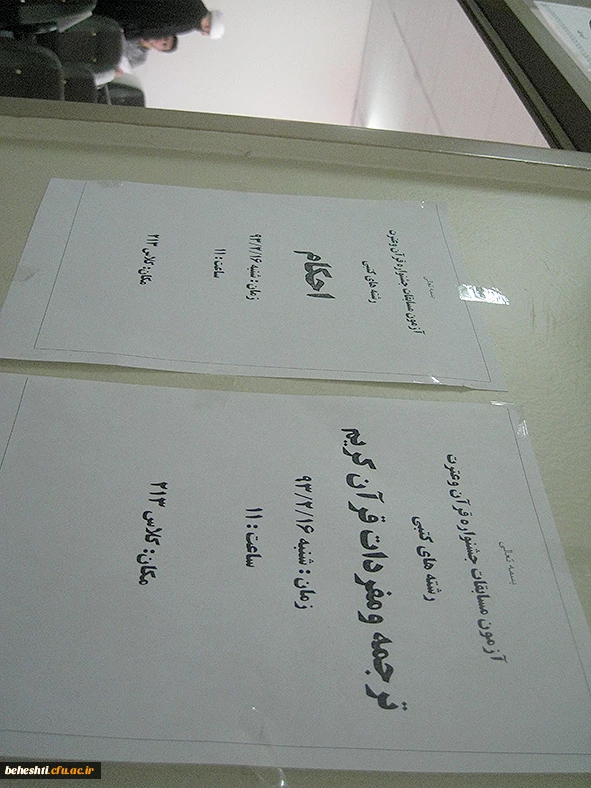 بسمه تعالی
آزمون مسابقات جشنواره قرآن وعترت
رشته های کتبی
احکام
زمان: شنبه ۹۳/۲/۱۶
ساعت: ۱۱
مکان: کلاس ۲۱۳
بسمه تعالی
آزمون مسابقات جشنواره قرآن وعترت
رشته های کتبی
ترجمه ومفردات قرآن کریم
زمان: شنبه ۹۳/۲/۱۶
ساعت: ۱۱
مکان: کلاس ۲۱۳
beheshti.cfu.ac.ir